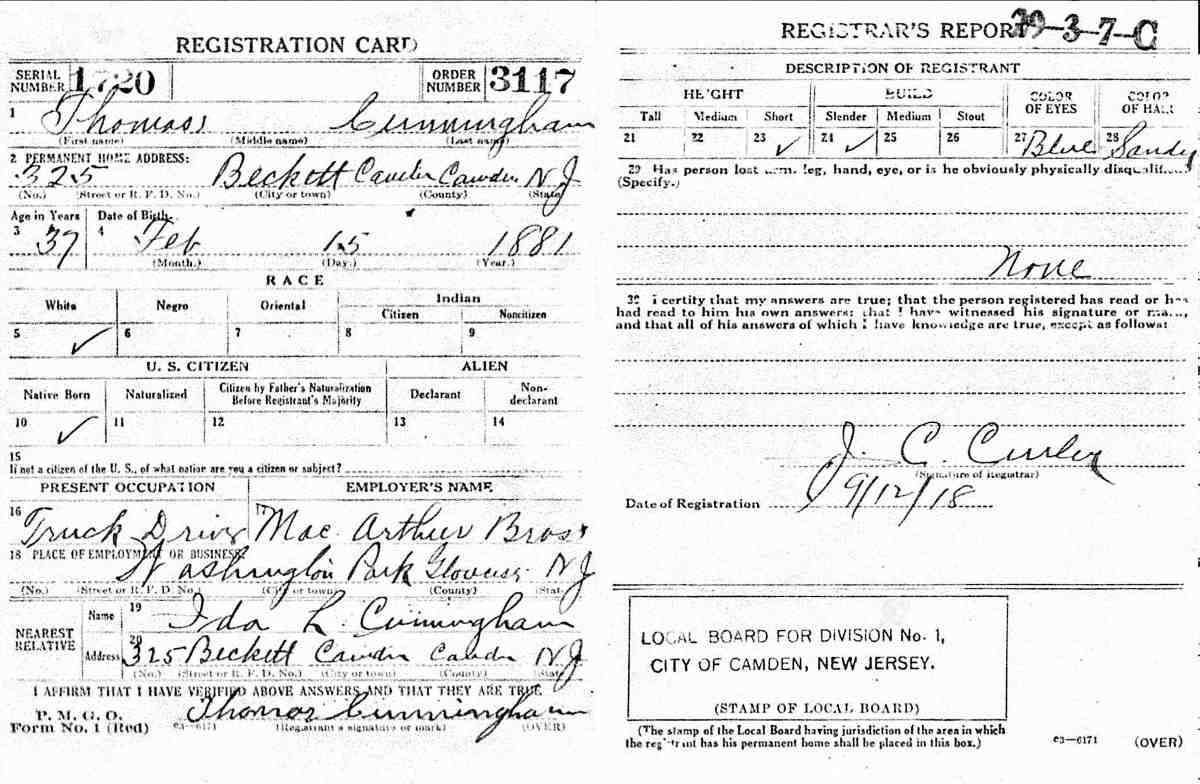 REGISTRATION CARD
SERIAL NUMBER 1720 ORDER NUMBER 3117
1 Thomas Cunningham
(First name) (Middle name) (Last name)
2 PERMANENT HOME ADDRESS:
325 Beckett Camden Camden N J
(No.) (Street or R. F. D. No.) (City or town) (County) (State)
Age in Years Date of Birth
3 37 4 Feb 15 1881
(Month.) (Day.) (Year.)
RACE
White Negro Oriental Indian
Citizen Noncitizen
5 ✓ 6 7 8 9
U. S. CITIZEN ALIEN
Native Born Naturalized Citizen by Father's Naturalization Before Registrant's Majority Declarant Non-declarant
10 ✓ 11 12 13 14
15
If not a citizen of the U. S., of what nation are you a citizen or subject?
PRESENT OCCUPATION EMPLOYER'S NAME
16 Truck Driver 17 Mac Arthur Bros
18 PLACE OF EMPLOYMENT OR BUSINESS:
Washington Park N J
(No.) (Street or R. F. D. No.) (City or town) (County) (State)
NEAREST RELATIVE
Name 19 Ida L. Cunningham
Address 20 325 Beckett Camden Camden N J
(No.) (Street or R. F. D. No.) (City or town) (County) (State)
I AFFIRM THAT I HAVE VERIFIED ABOVE ANSWERS AND THAT THEY ARE TRUE
P. M. G. O.
Form No. 1 (Red) c3—6171 Thomas Cunningham
(Registrant's signature or mark) (OVER)
REGISTRAR'S REPORT 29-3-7-C
DESCRIPTION OF REGISTRANT
HEIGHT BUILD COLOR OF EYES COLOR OF HAIR
Tall Medium Short Slender Medium Stout
21 22 23 ✓ 24 ✓ 25 26 27 Blue 28 Sandy
29 Has person lost arm, leg, hand, eye, or is he obviously physically disqualified?
(Specify.)
None
30 I certify that my answers are true; that the person registered has read or has
had read to him his own answers; that I have witnessed his signature or mark,
and that all of his answers of which I have knowledge are true, except as follows:
J. C. Curley
(Signature of Registrar)
Date of Registration 9/12/18
LOCAL BOARD FOR DIVISION No. 1,
CITY OF CAMDEN, NEW JERSEY.
(STAMP OF LOCAL BOARD)
(The stamp of the Local Board having jurisdiction of the area in which
the registrant has his permanent home shall be placed in this box.)
c3—6171 (OVER)